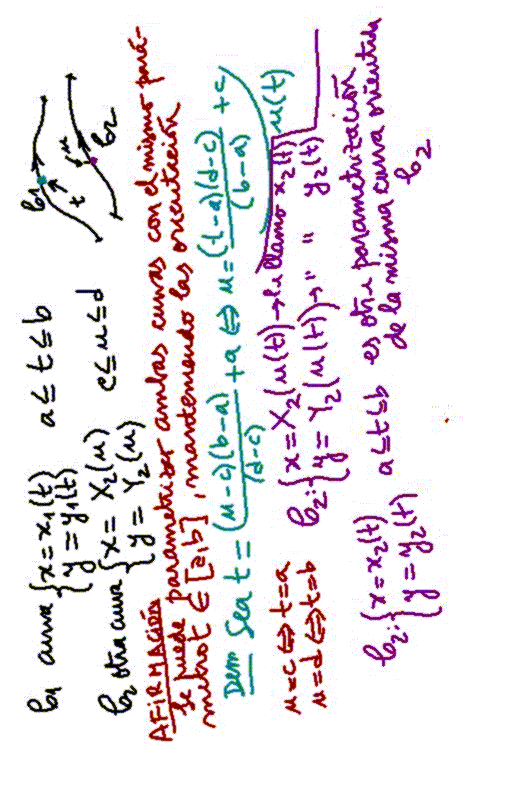 𝒞1 curva { x = x1(t) y = y1(t) a ≤ t ≤ b
𝒞1 t u 𝒞2
𝒞2 otra curva { x = X2(u) y = Y2(u) c ≤ u ≤ d
AFIRMACIÓN
Se puede parametrizar ambas curvas con el mismo pará-
metro t ∈ [a,b], manteniendo las orientación
Dem Sea t = (u-c)(b-a)/(d-c) + a ⇔ u = (t-a)(d-c)/(b-a) + c
u(t)
u=c ⇔ t=a
u=d ⇔ t=b
𝒞2: { x = X2(u(t)) → le llamo x2(t)
y = Y2(u(t)) → " " y2(t)
𝒞2: { x = x2(t) y = y2(t) a ≤ t ≤ b es otra parametrización
de la misma curva orientida
𝒞2